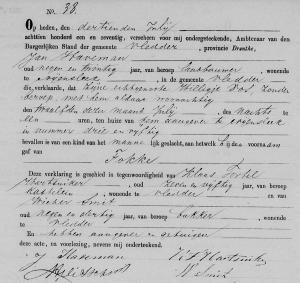 No. 38.
Op heden, den dertienden July
achttien honderd een en zeventig, verscheen voor mij ondergeteekende, Ambtenaar van den
Burgerlijken Stand der gemeente Vledder, provincie Drenthe,
Jan Haveman
oud negen en twintig jaar, van beroep landbouwer, wonende
te in de gemeente Vledder
die, verklaarde, dat zyne echtgenoote Willegje Vos, zonder
beroep, met hem aldaar woonachtig
den twaalfden dezer maand July des nachts te
een uren, ten huize van hem aangever te
in nummer drie en vyftig
bevallen is van een kind van het manne lijk geslacht, aan hetwelk hij den voornaam
gaf van
Fokke
Deze verklaring is geschied in tegenwoordigheid van Klaas
oud zeven en vyftig jaar, van beroep
Kastelein, wonende te Vledder en
Wicher Smit
oud negen en dertig jaar, van beroep bakker, wonende
te Vledder
En hebben aangever en getuigen
deze acte, na voorlezing, nevens mij onderteekend.
J Haveman
W Smit